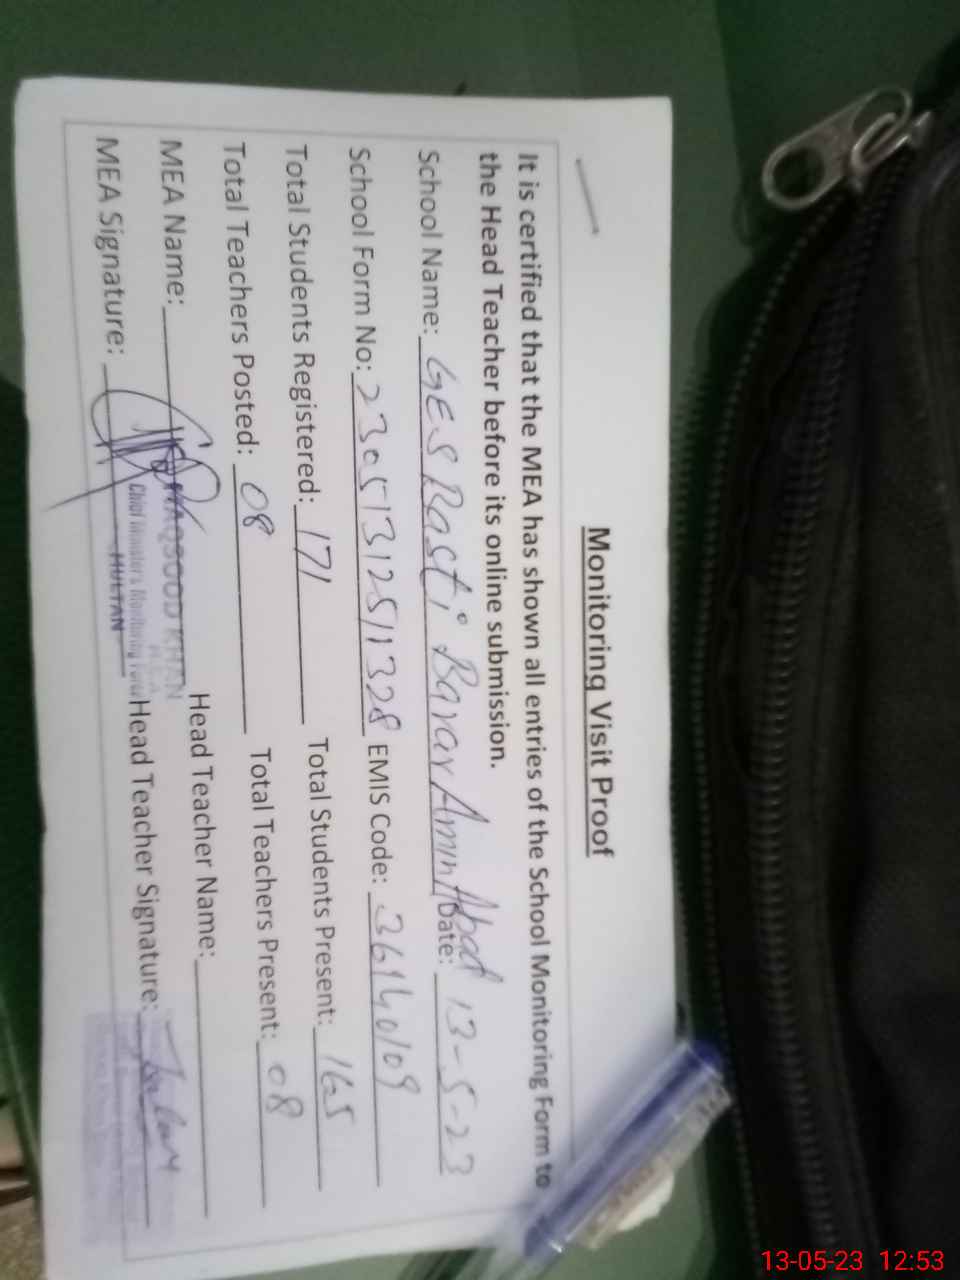 Monitoring Visit Proof
It is certified that the MEA has shown all entries of the School Monitoring Form to
the Head Teacher before its online submission.
School Name: GES Basti Barar Amin Abad Date: 13-5-23
School Form No: 23051312511328 EMIS Code: 36140109
Total Students Registered: 171 Total Students Present: 165
Total Teachers Posted: 08 Total Teachers Present: 08
MEA Name: MAQSOOD KHAN Head Teacher Name:
MEA
MEA Signature: Head Teacher Signature:
Chief Minister's Monitoring Force
MULTAN
13-05-23 12:53